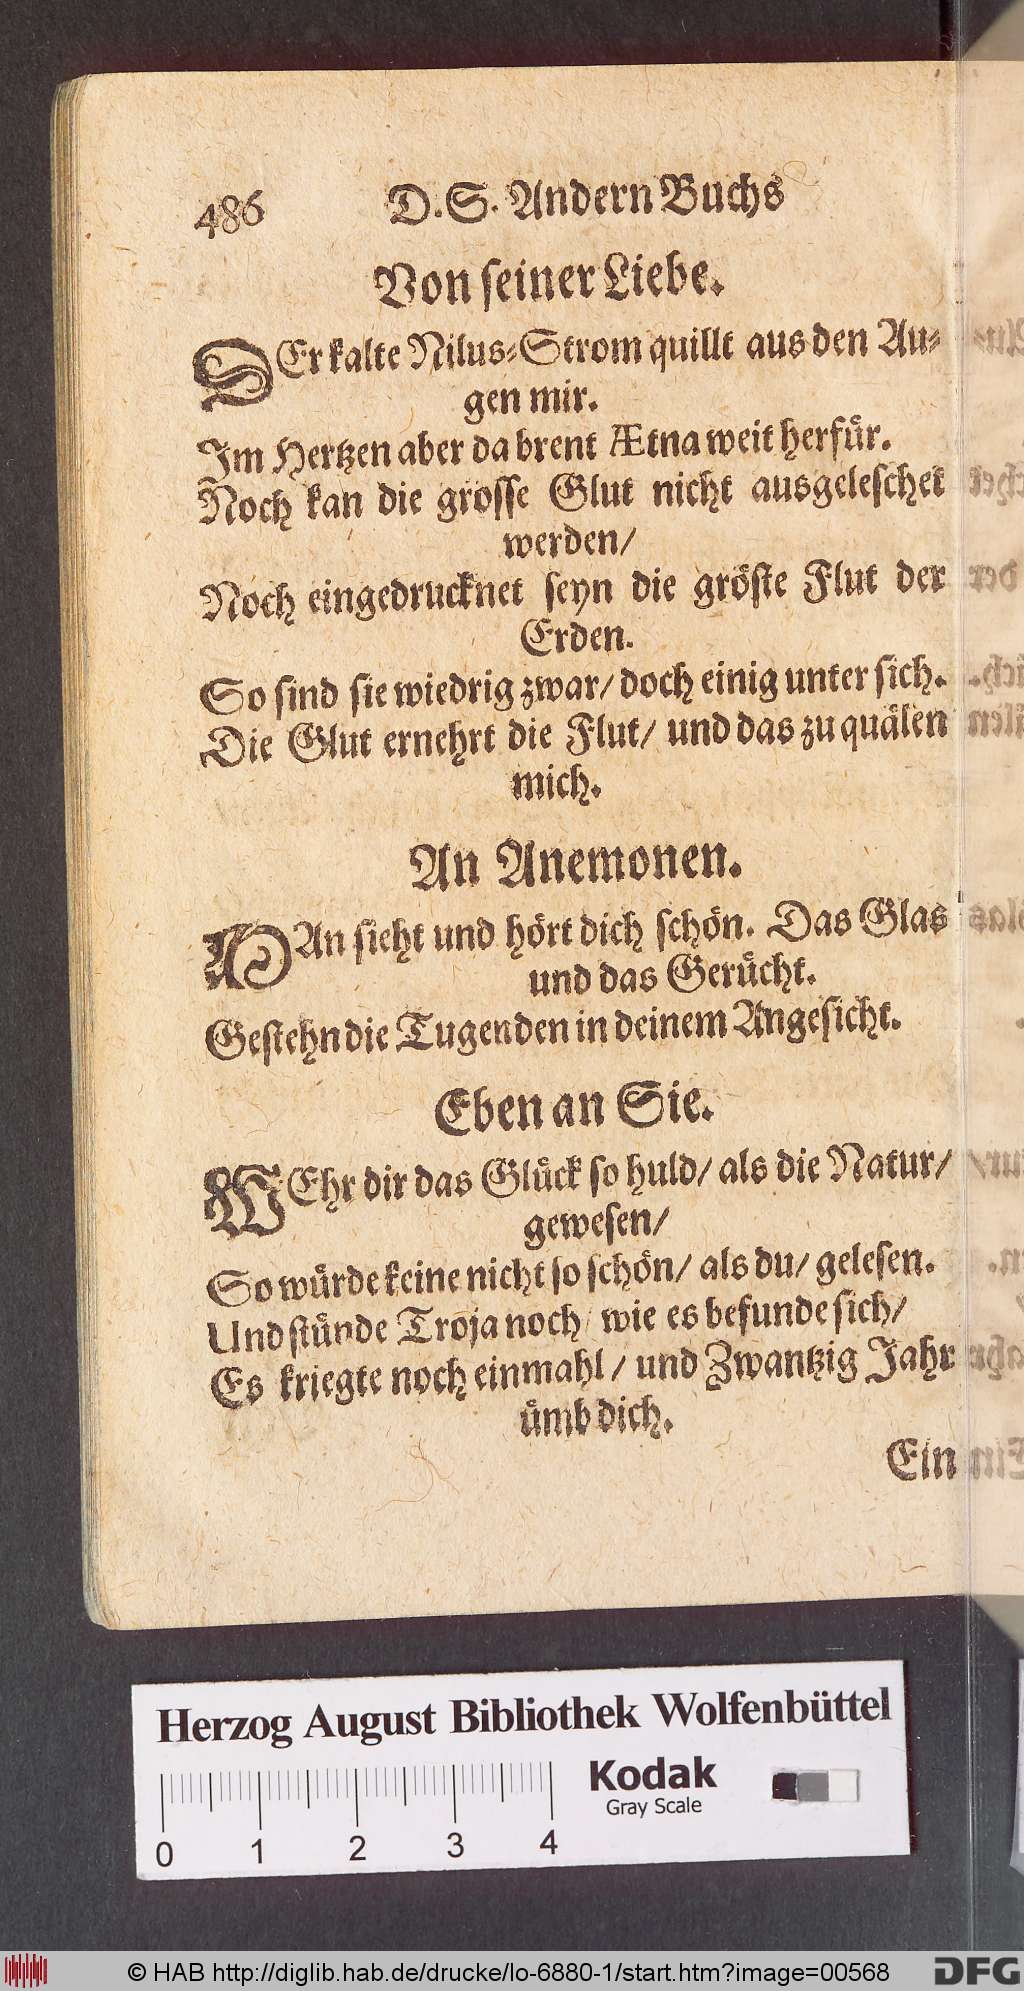 486 D. S. Andern Buchs
Von seiner Liebe.
DEr kalte Nilus-Strom quillt aus den Au-
gen mir.
Im Hertzen aber da brent Ætna weit herfuͤr.
Noch kan die grosse Glut nicht ausgeleschet
werden/
Noch eingedrucknet seyn die groͤste Flut der
Erden.
So sind sie wiedrig zwar/ doch einig unter sich.
Die Glut ernehrt die Flut/ und das zu quaͤlen
mich.
An Anemonen.
MAn sieht und hoͤrt dich schoͤn. Das Glas
und das Geruͤcht.
Gestehn die Tugenden in deinem Angesicht.
Eben an Sie.
WEhr dir das Gluͤck so huld/ als die Natur/
gewesen/
So wuͤrde keine nicht so schoͤn/ als du/ gelesen.
Und stuͤnde Troja noch/ wie es befunde sich/
Es kriegte noch einmahl/ und Zwantzig Jahr
uͤmb dich.
Ein
Herzog August Bibliothek Wolfenbüttel
Kodak
Gray Scale
0 1 2 3 4
© HAB http://diglib.hab.de/drucke/lo-6880-1/start.htm?image=00568
DFG